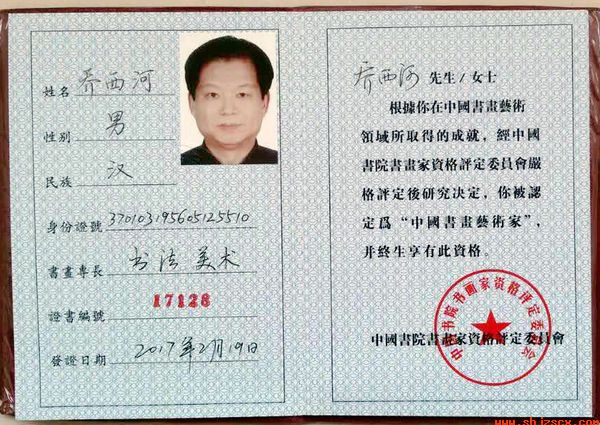 姓名 乔西河
性别 男
民族 汉
身份證號 370103195605125510
書畫專長 书法 美术
證書編號 17128
發證日期 2017年2月19日
乔西河 先生/女士
根據你在中國書畫藝術
領域所取得的成就，經中國
書院書畫家資格評定委員會嚴
格評定後研究決定，你被認
定爲“中國書畫藝術家”，
并終生享有此資格。
中國書院書畫家資格評定委員會
中国书院书画家资格评定委员会
www.shjzscx.com